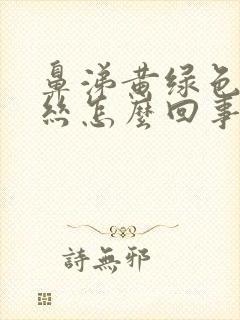 鼻涕黄绿色
丝怎麼回事
詩無邪